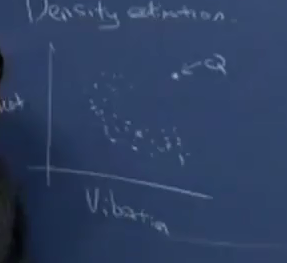 Density estimation.
Vibration